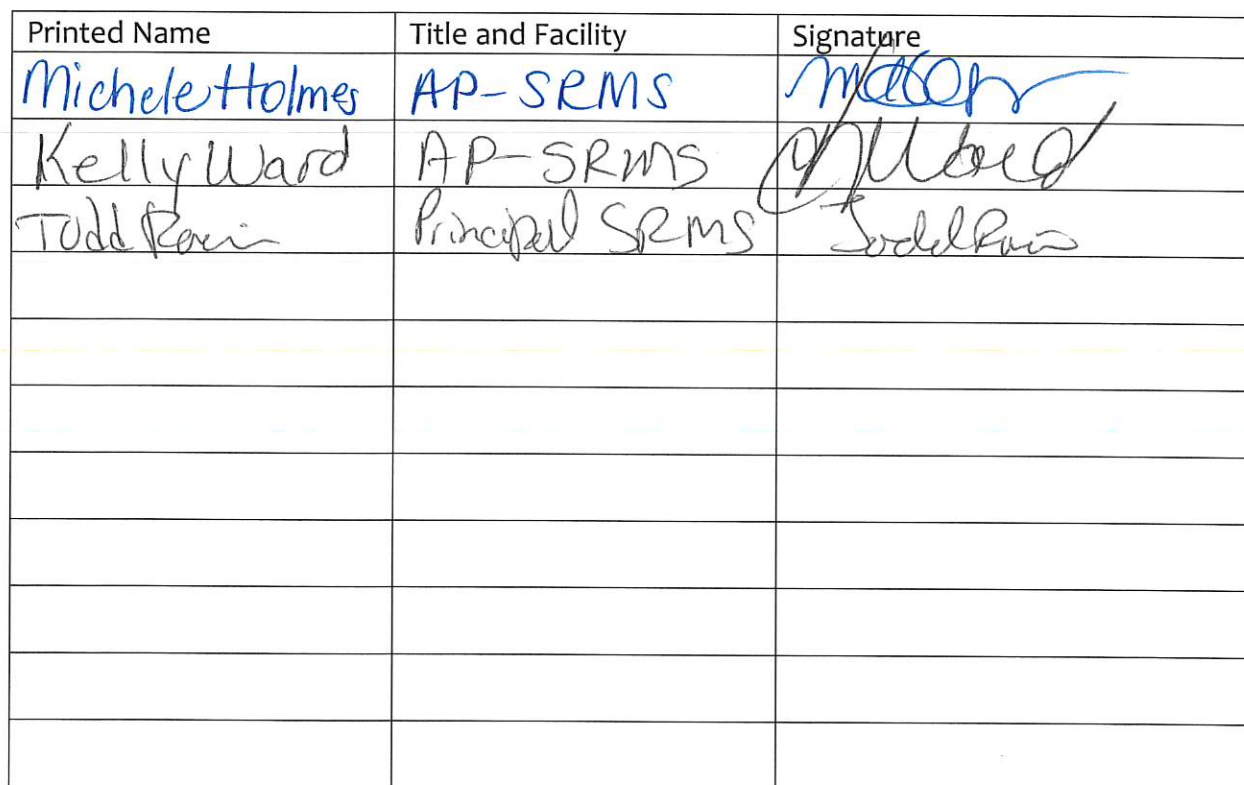 Printed Name Title and Facility Signature
Michele Holmes AP-SRMS
Kelly Ward AP-SRMS
Todd Principal SRMS Todd